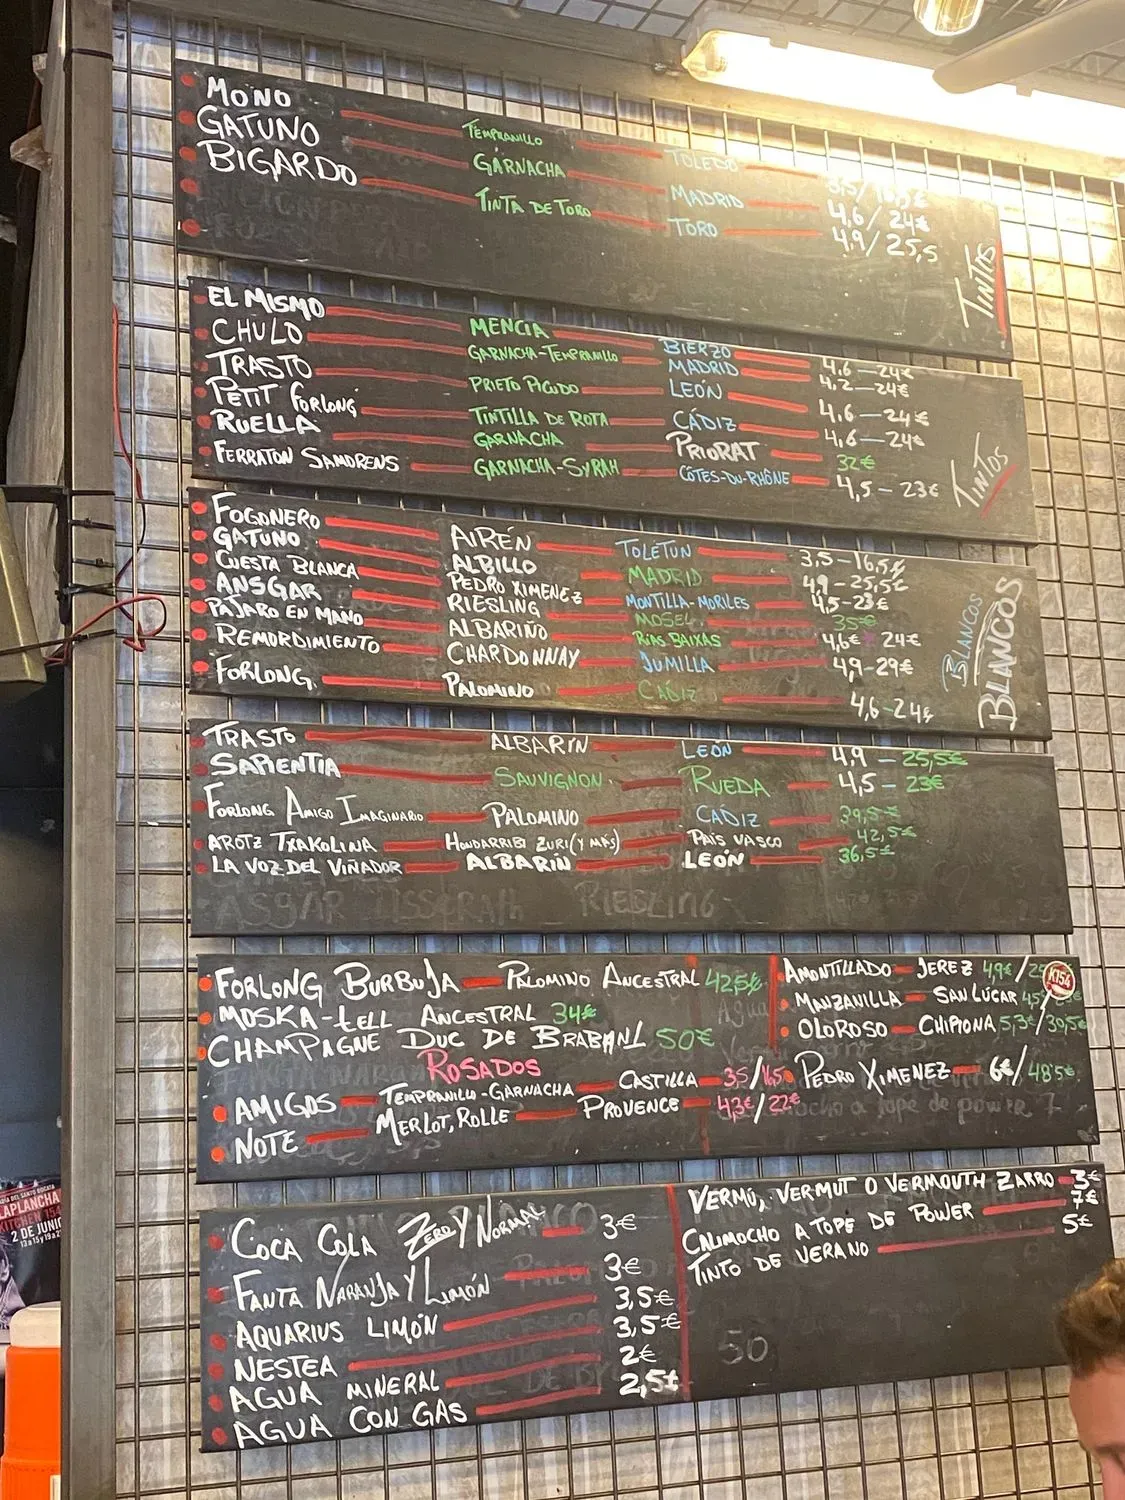 MONO TEMPRANILLO TOLEDO
GATUNO GARNACHA MADRID 4,6/24€
BIGARDO TINTA DE TORO TORO 4,9/25,5
TINTAS
EL MISMO MENCIA BIERZO 4,6—24€
CHULO GARNACHA-TEMPRANILLO MADRID 4,2—24€
TRASTO PRIETO PICUDO LEÓN 4,6—24€
PETIT FORLONG TINTILLA DE ROTA CÁDIZ 4,6—24€
RUELLA GARNACHA PRIORAT 32€
FERRATON SAMORENS GARNACHA-SYRAH CÔTES-DU-RHÔNE 4,5—23€
TINTOS
FOGONERO AIRÉN TOLETUN 3,5—16,5€
GATUNO ALBILLO MADRID 4,9-25,5€
CUESTA BLANCA PEDRO XIMENEZ MONTILLA-MORILES 4,5-23€
ANSGAR RIESLING MOSEL 35€
PÁJARO EN MANO ALBARIÑO RÍAS BAIXAS 4,6€ 24€
REMORDIMIENTO CHARDONNAY JUMILLA 4,9-29€
FORLONG PALOMINO CADIZ 4,6-24€
BLANCOS
BLANCOS
TRASTO ALBARÍN LEÓN 4,9 — 25,5€
SAPIENTIA SAUVIGNON RUEDA 4,5 — 23€
FORLONG AMIGO IMAGINARIO PALOMINO CADIZ 39,5€
AROTZ TXAKOLINA HONDARRIBI ZURI (Y MÁS) PAÍS VASCO 42,5€
LA VOZ DEL VIÑADOR ALBARÍN LEÓN 36,5€
RIESLING
FORLONG BURBUJA PALOMINO ANCESTRAL 42,5€
MOSKA-TELL ANCESTRAL 34€
CHAMPAGNE DUC DE BRABANT 50€
ROSADOS
AMIGOS TEMPRANILLO-GARNACHA CASTILLA 3,5/16,5
NOTE MERLOT, ROLLE PROVENCE 4,3€/22€
AMONTILLADO JEREZ 4,9€/
K154
MANZANILLA SAN LÚCAR
OLOROSO CHIPIONA 5,3€/39,5€
PEDRO XIMENEZ 6€/48,5€
COCA COLA ZERO Y NORMAL 3€
FANTA NARANJA Y LIMÓN 3€
AQUARIUS LIMÓN 3,5€
NESTEA 3,5€
AGUA MINERAL 2€
AGUA CON GAS 2,5€
VERMÚ, VERMUT O VERMOUTH ZARRO 3€
CALIMOCHO A TOPE DE POWER 7€
TINTO DE VERANO 5€
50
LAPLANCHA
2 DE JUNIO